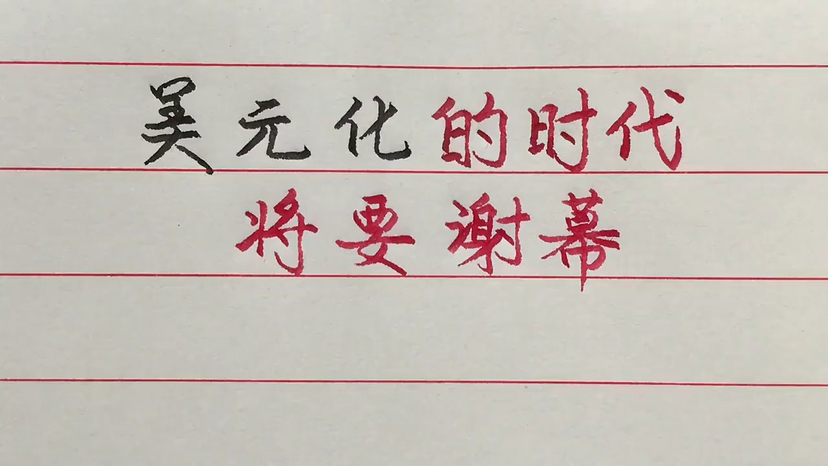 美元化的时代
将要谢幕